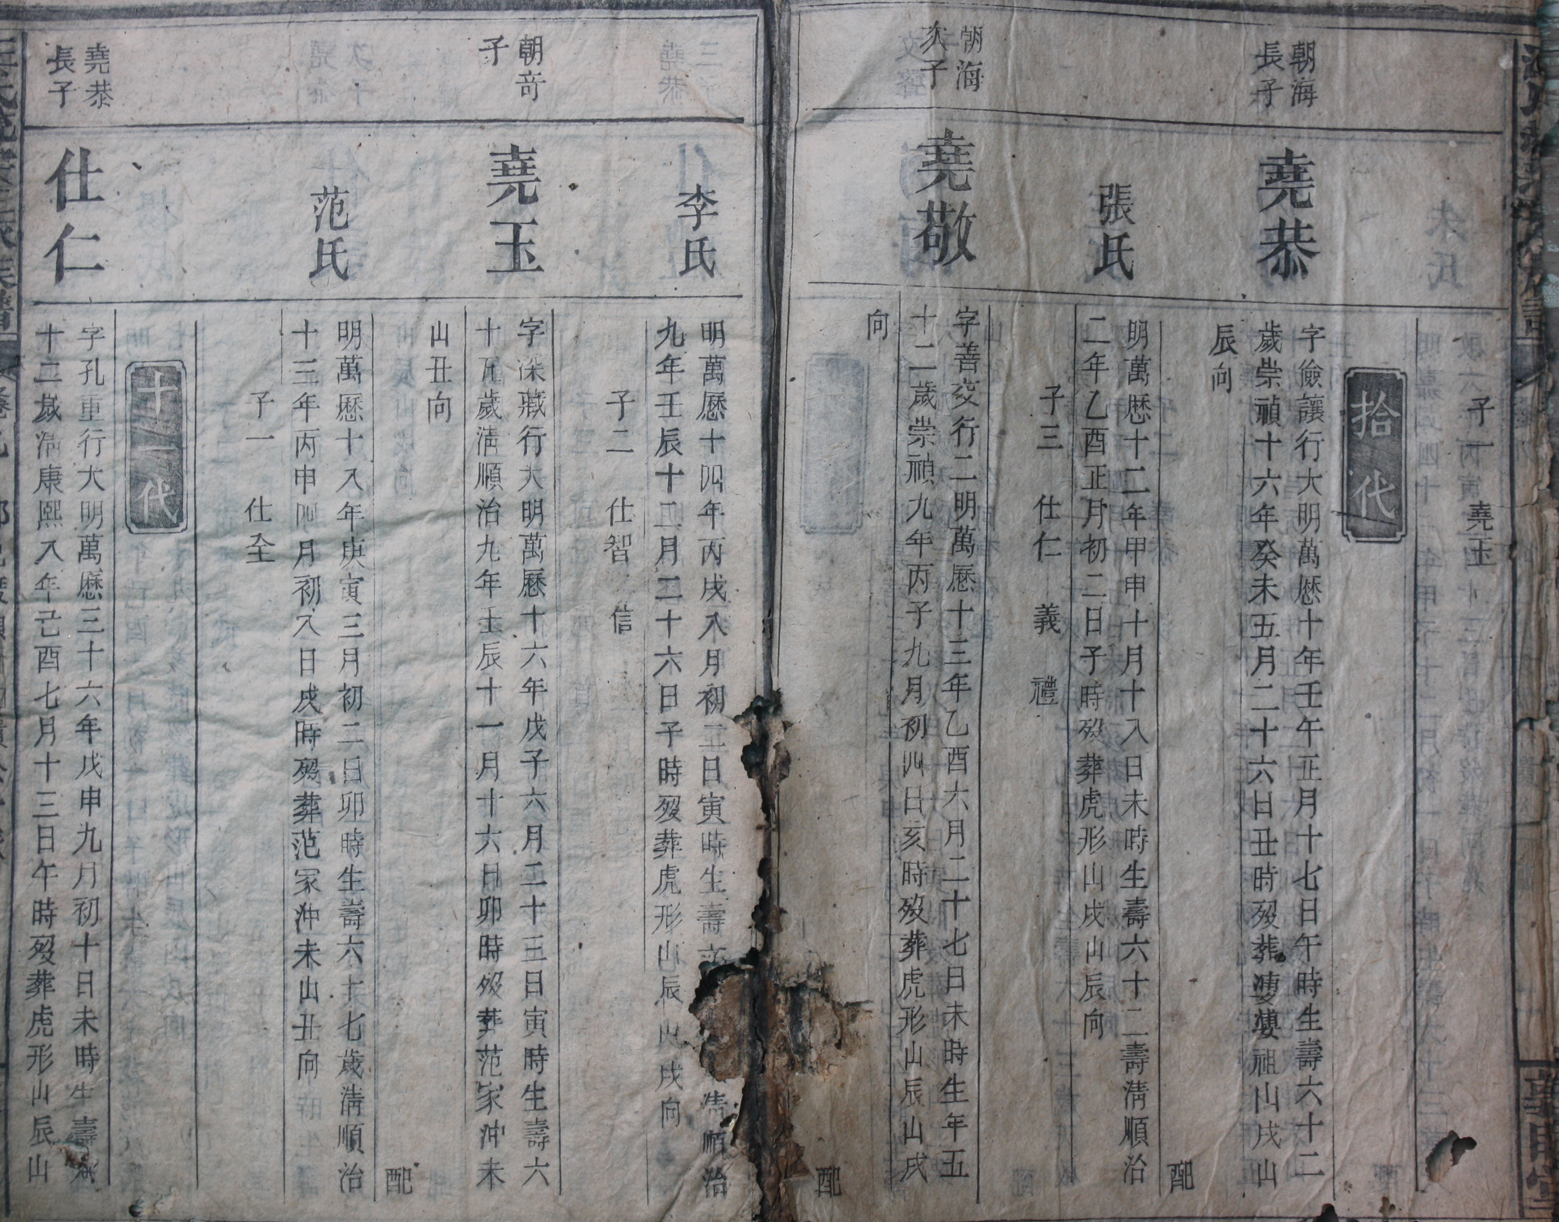 子一 堯玉
拾代
朝海
長子
堯恭
字儉讓行大明萬歷十年壬午正月十七日午時生壽六十二
歲崇禎十六年癸未五月二十六日丑時歿葬 祖山戌山
辰向
配
張氏
明萬歷十二年甲申十月十八日未時生壽六十二壽淸順治
二年乙酉正月初二日子時歿葬虎形山戌山辰向
子三 仕仁 義 禮
朝海
次子
堯敬
字善交行二明萬歷十三年乙酉六月二十七日未時生年五
十二歲崇禎九年丙子九月初四日亥時歿葬虎形山辰山戌
向
配
李氏
明萬歷十四年丙戌八月初五日寅時生壽 淸順治
九年壬辰十二月二十六日子時歿葬虎形山辰山戌向
子二 仕智 信
朝奇
子
堯玉
字深藏行大明萬歷十六年戊子六月二十三日寅時生壽六
十五歲淸順治九年壬辰十一月十六日卯時歿葬范家沖未
山丑向
配
范氏
明萬歷十八年庚寅三月初二日卯時生壽六十七歲淸順治
十三年丙申四月初八日戌時歿葬范家沖未山丑向
子一 仕全
十一代
堯恭
長子
仕仁
字孔重行大明萬歷三十六年戊申九月初十日未時生壽六
十二歲淸康熙八年己酉七月十三日午時歿葬虎形山辰山